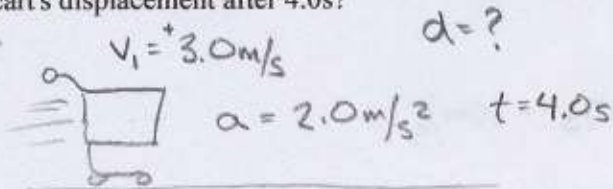 cart's displacement after 4.0s?
V₁ = ⁺3.0m/s
d = ?
a = 2.0m/s²
t = 4.0s